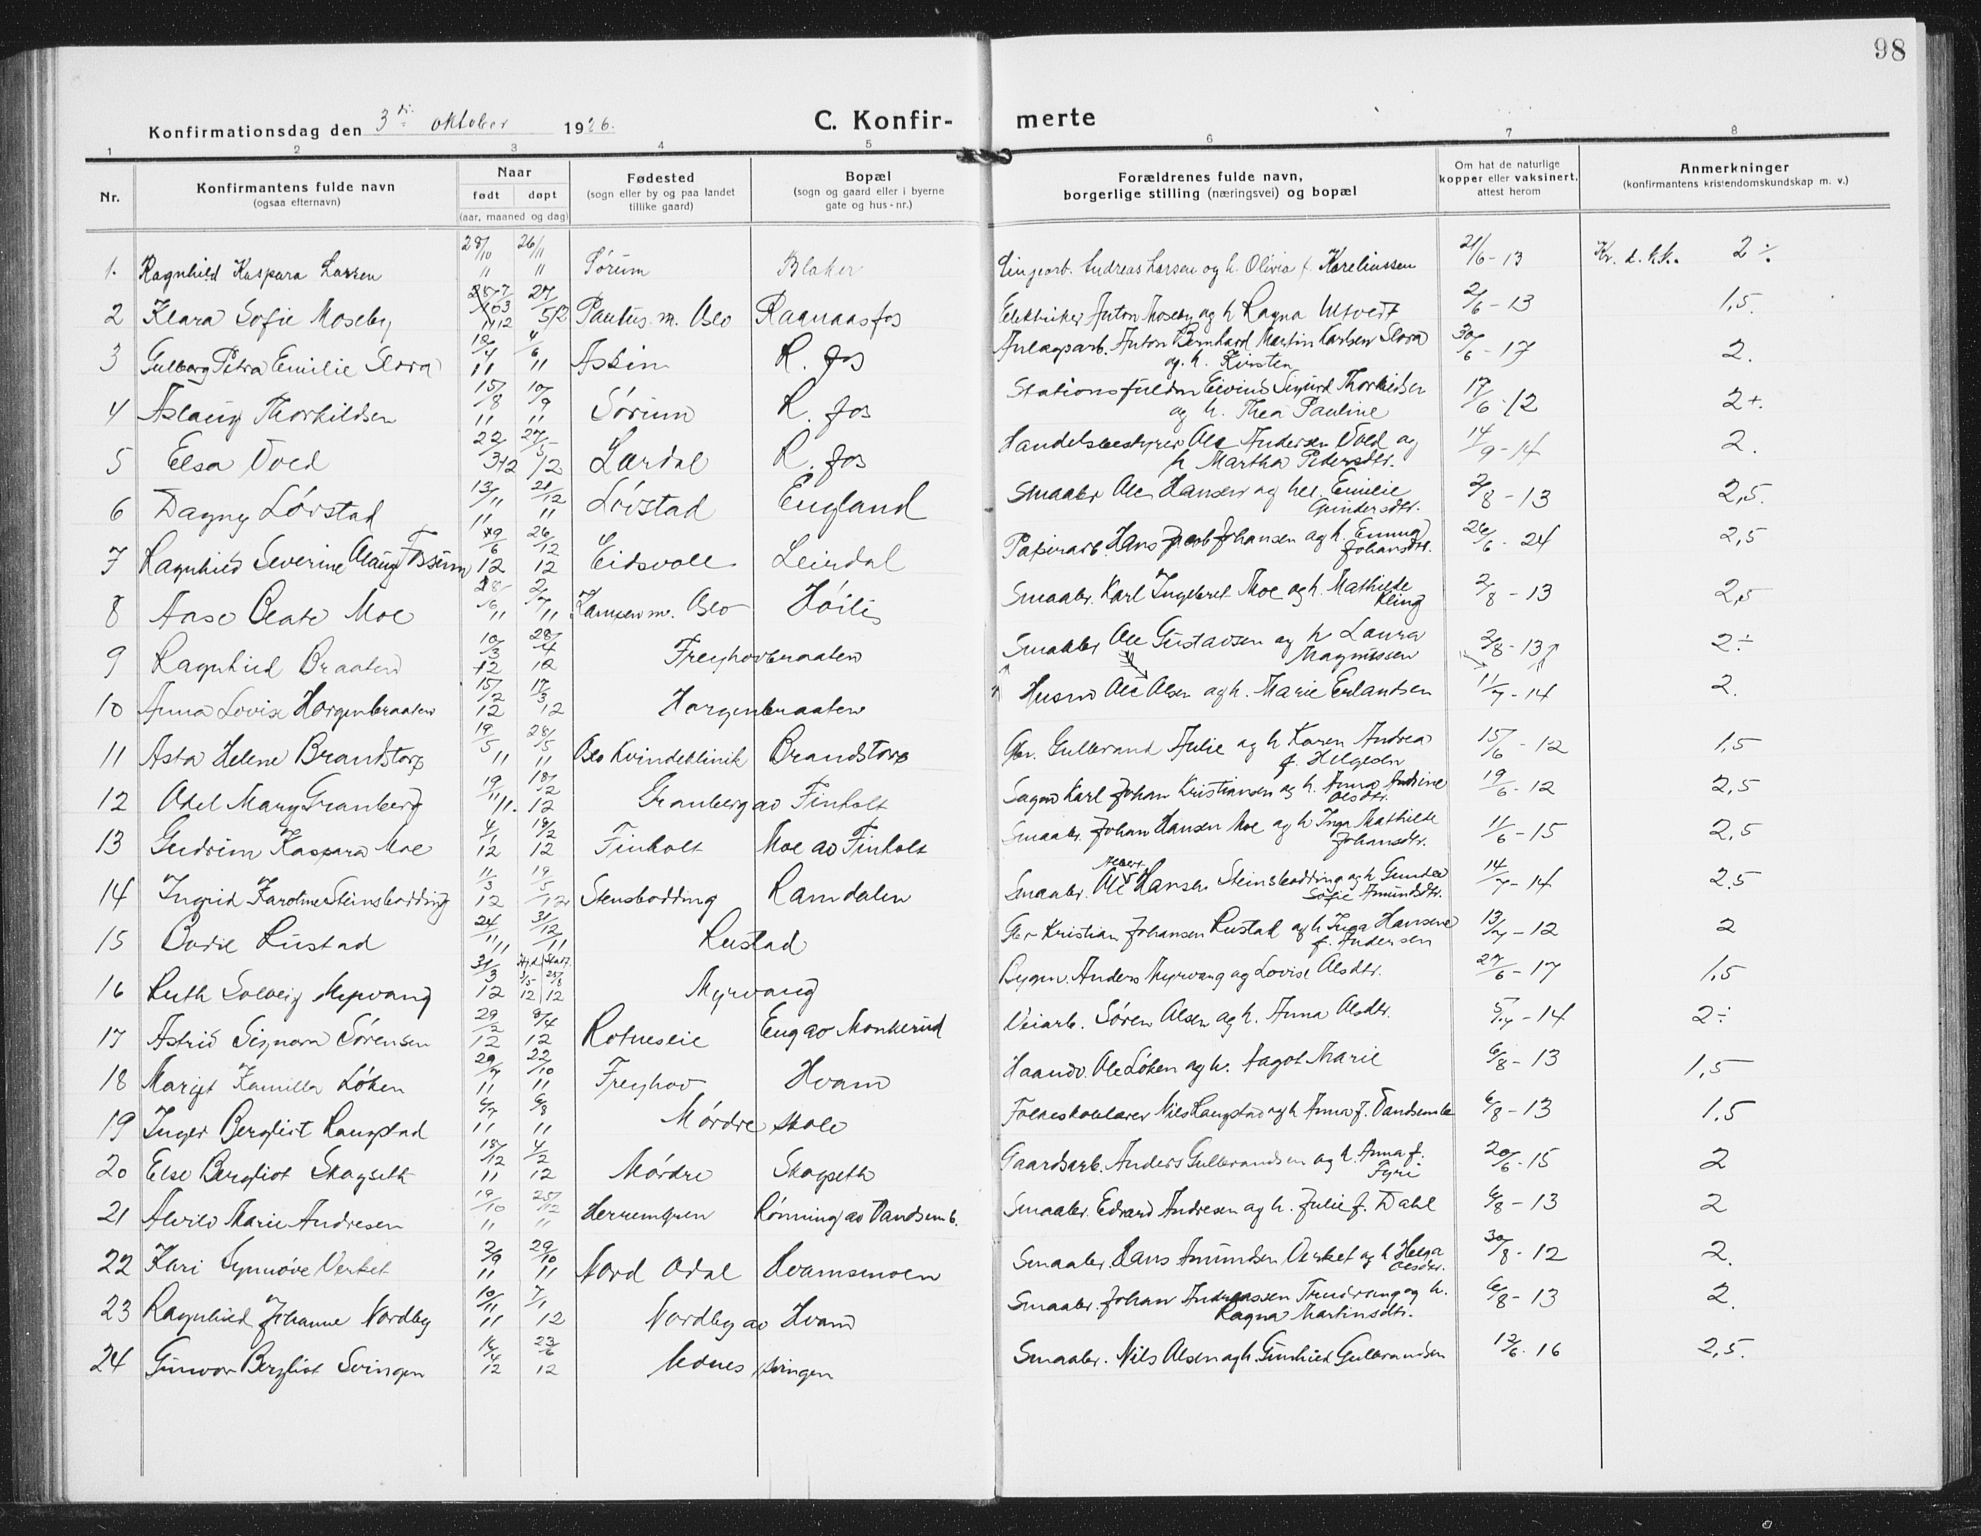 98
Konfirmationsdag den 3di oktober 1926. C. Konfir- merte
1 2 3 4 5 6 7 8
Nr. Konfirmantens fulde navn (ogsaa efternavn) Naar født døpt (aar, maaned og dag) Fødested (sogn eller by og paa landet tillike gaard) Bopæl (sogn og gaard eller i byerne gate og hus-nr.) Forældrenes fulde navn, borgerlige stilling (næringsvei) og bopæl Om hat de naturlige kopper eller vaksinert, attest herom Anmerkninger (konfirmantens kristendomskundskap m. v.)
1. Ragnhild Kaspara Larsen 28/10 11 26/11 11 Sørum Blaker Andreas Larsen og h. Olivia f. Kareliussen 21/6-13 Kr. d. k.k. 2÷
2 Klara Sofie Moseby 27/5 12 Paulus m. Oslo Raanaasfos Elektriker Anton Moseby og h Ragna Utvedt 2/6-13 1,5.
3 Gulborg Petra Emilie Slora 18/4 11 4/6 11 Askim R. fos Anlægsarb. Anton Bernhard Martin Karlsen Slora og h. Kirsten 30/6-17 2.
4 Aslaug Thorkildsen 15/8 11 10/9 11 Sørum R. fos Stationsfuldm Eivind Sigurd Thorkildsen og h. Thea Pauline 17/6-12 2+.
5 Elsa Vold 22/3 12 27/5 12 Lærdal R. fos Handelsbestyrer Ole Andersen Vold og h Martha Pedersdtr. 14/9-14 2.
6 Dagny Lørstad 13/11 11 21/12 11 Lørstad England Smaabr Ole Hansen og h. Emilie Gundersdtr. 2/8-13 2,5.
7 Ragnhild Severine Olaug Fossum 19/6 12 26/12 12 Eidsvoll Leirdal Papirarb Hans Jacob Johansen og h. Emma Johansdtr. 26/6-24 2,5
8 Aase Beate Moe 28/6 11 2/7 11 Kampen m. Oslo Høili Smaabr. Karl Ingebret Moe og h. Mathilde Kling 2/8-13 2,5
9 Ragnhild Braaten 10/3 12 28/4 12 Freyhovbraaten Smaabr Ole Gustavsen og h Laura Magnussen 2/8-13 2÷
10 Anna Lovise Horgenbraaten 15/2 12 17/3 12 Horgenbraaten Husm Ole Olsen og h. Marie Erlandsen 11/7-14 2.
11 Asta Helene Brandstorp 19/5 11 28/5 11 Oslo Kvindeklinik Brandstorp Gbr. Gulbrand Julie og h Karen Andrea f. Helgesen 15/6-12 1,5
12 Odel Mary Granberg 19/11 11. 18/2 12 Granberg av Finholt Sagm Karl Johan Kristiansen og h. Anna Andrine Olsdtr. 19/6-12 2,5
13 Gudrun Kaspara Moe 4/1 12 18/2 12 Finholt Moe av Finholt Smaabr. Johan Hansen Moe og h Inga Mathilde Johansdtr. 11/6-15 2,5
14 Ingrid Karoline Steinsbodding 11/3 12 19/5 12 Stensbodding Ramdalen Smaabr. Ole Albert Hansen Steinsbodding og h Gunda Sofie Amundsdtr. 14/7-14 2.5
15 Bodil Rustad 24/11 11 31/12 11 Rustad Gbr Kristian Johansen Rustad og h Inga Hansine f. Andersen 13/7-12 2
16 Ruth Solveig Myrvang 31/3 12 Hjd. 3/5 12 Stadf. 25/8 12 Myrvang Bygm. Anders Myrvang og Lovise Olsdtr. 27/6-17 1,5
17 Astrid Signora Sørensen 29/2 12 8/4 12 Rotneseie Eng av Monkerud Veiarb. Søren Olsen og h. Anna Olsdtr. 5/7-14 2÷
18 Margit Kamilla Løken 29/7 11 22/10 11 Freyhov Hvam Haandv. Ole Løken og h. Aagot Marie 6/8-13 1,5
19 Inger Bergliot Langstad 6/7 11 6/8 11 Mørdre skole Folkeskolelærer Nils Langstad og h Anna f. Vandsemb 6/8-13 1,5
20 Else Bergliot Skogseth 18/12 11 4/2 12 Mørdre Skogseth Gaardsarb. Anders Gulbrandsen og h. Anna f. Fyri 20/6-15 2
21 Alvild Marie Andresen 19/10 11 25/12 11 Herremyren Rønning av Vandsemb. Smaabr. Edvard Andresen og h. Julie f. Dahl 6/8-13 2
22 Kari Synnøve Verket 2/9 11 29/10 11 Nord Odal Hvamsmoen Smaabr. Hans Amundsen Verket og h Helga Olsdtr. 30/8-12 2.
23 Ragnhild Johanne Nordby 10/11 11 7/1 12 Nordby av Hvam Smaabr. Johan Andreassen og h. Ragna Martinsdtr. 6/8-13 2.
24 Gunvor Bergliot Svingen 16/4 12 23/6 12 Udnes Svingen Smaabr. Nils Olsen og h. Gunhild Gulbrandsen 12/6-16 2,5.